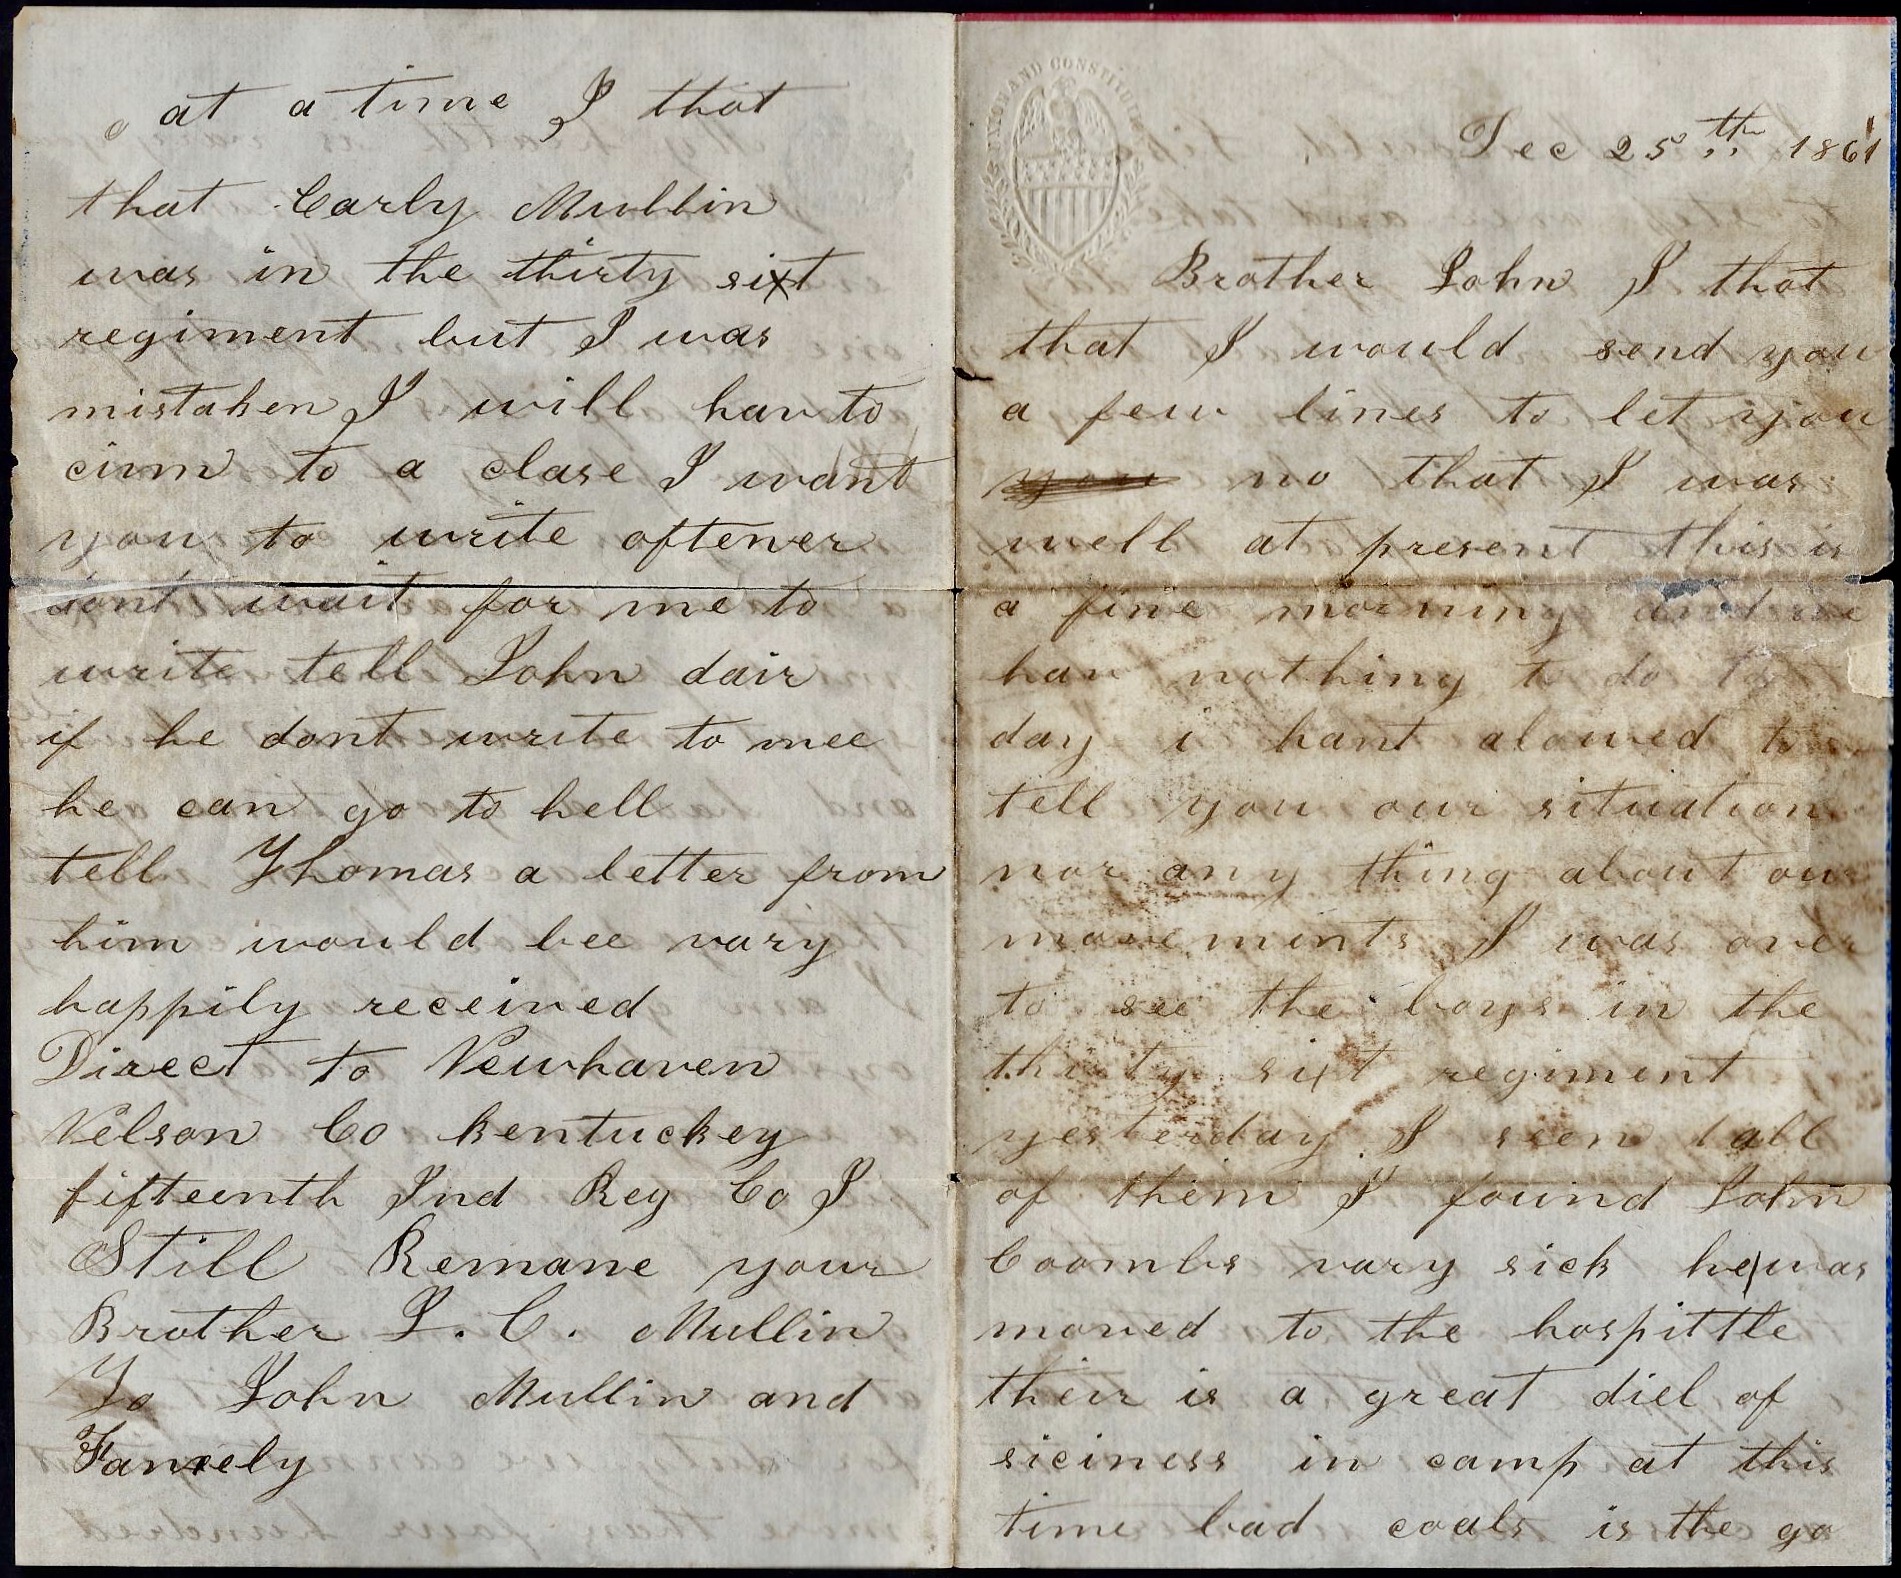 UNION AND CONSTITUTION
Dec 25th 1861
Brother John I that
that I would send you
a few lines to let you
you no that I was
well at present this is
a fine morning and we
hav nothing to do to
day i hant alowed to
tell you our situation
nor any thing about our
movemints I was over
to see the boys in the
thirty sixt regiment
yesterday I seen all
of them I found John
Coombs vary sick he was
moved to the hospittle
their is a great diel of
siciness in camp at this
time bad coals is the go
at a time I that
that Carly Mullin
was in the thirty sixt
regiment but I was
mistaken I will hav to
cum to a clase I want
you to write oftener
dont wait for me to
write tell John dair
if he dont write to mee
he can go to hell
tell Thomas a letter from
him would bee vary
happily received
Direct to Newhaven
Nelson Co Kentuckey
fifteenth Ind Reg Co I
Still Remane your
Brother I. C. Mullin
To John Mullin and
Famely